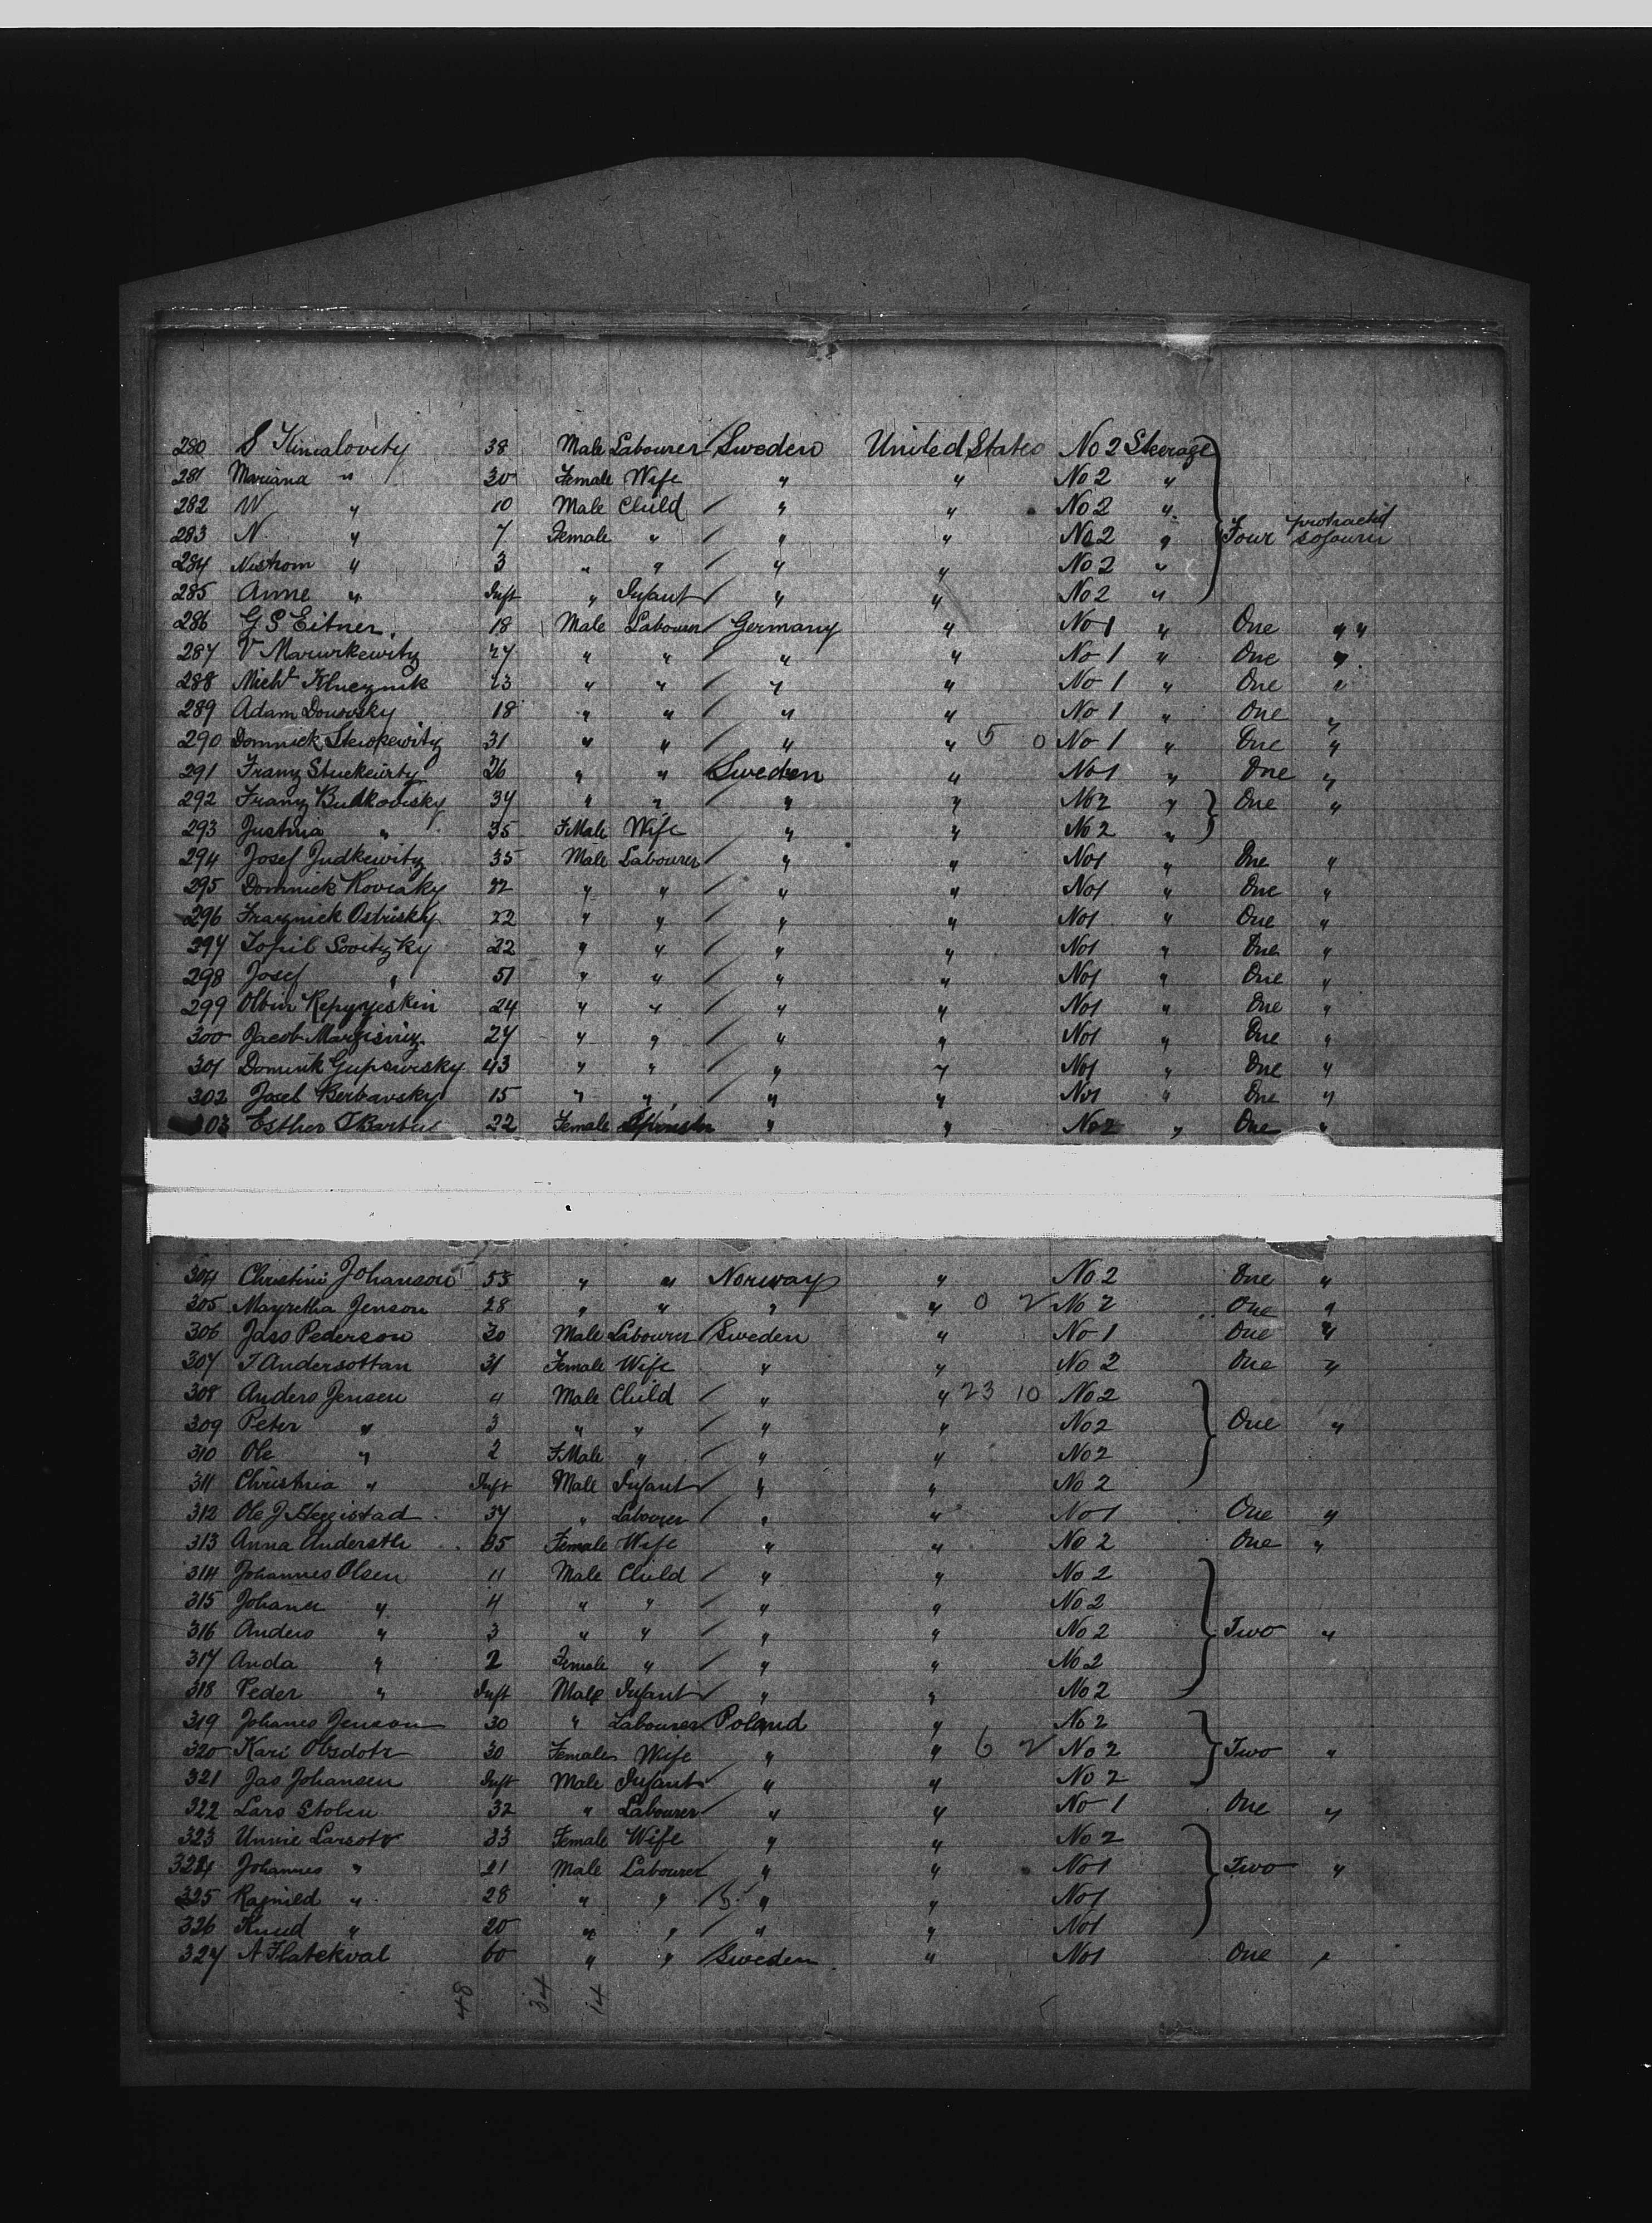 280 S Kimalovity 38 Male Labourer Sweden United States No 2 Steerage
281 Mariana " 30 Female Wife " " No 2 "
282 W " 10 Male Child " " No 2 "
283 N " 7 Female " " " No 2 " Four protracted sojourn
284 Nistrom " 3 " " " " No 2 "
285 Anne " Inft " Infant " " No 2 "
286 G S Eitner 18 Male Labourer Germany " No 1 " One " "
287 V Marurkewitz 27 " " " " No 1 " One "
288 23 " " " " No 1 " One "
289 Adam Donovsky 18 " " " " No 1 " One "
290 Domnick 31 " " " " 5 0 No 1 " One "
291 Franz 26 " " Sweden " No 1 " One "
292 Franz Butkowsky 34 " " " " No 2 " One "
293 Justina " 35 FMale Wife " " No 2 "
294 Josef Judkewitz 35 Male Labourer " " No 1 " One "
295 Domnick 22 " " " " No 1 " One "
296 Ostrisky 22 " " " " No 1 " One "
297 Topil Sovitzky 22 " " " " No 1 " One "
298 Josef " 51 " " " " No 1 " One "
299 24 " " " " No 1 " One "
300 Jacob 27 " " " " No 1 " One "
301 Dominik 43 " " " " No 1 " One "
302 Berbavsky 15 " " " " No 1 " One "
303 Esther 22 Female Spinster " " No 2 " One "
304 Christine Johanson 53 " " Norway " No 2 One "
305 Mayretha Jenson 28 " " " " 0 2 No 2 One "
306 Jaso Pederson 30 Male Labourer Sweden " No 1 One "
307 T Andersottan 31 Female Wife " " No 2 One "
308 Anders Jensen 4 Male Child " " 23 10 No 2
309 Peter " 3 " " " " No 2 One "
310 Ole " 2 FMale " " " No 2
311 Christina " Inft Male Infant " " No 2
312 Ole J Heggistad 34 " Labourer " " No 1 One "
313 Anna Andersth 35 Female Wife " " No 2 One "
314 Johannes Olsen 11 Male Child " " No 2
315 " 4 " " " " No 2
316 Anders " 3 " " " " No 2 Two "
317 Anda " 2 Female " " " No 2
318 Peder " Inft Male Infant " " No 2
319 Johanes Jenson 30 " Labourer Poland " No 2
320 Kari Olsdotr 30 Female Wife " " 6 2 No 2 Two "
321 Jas Johansen Inft Male Infant " " No 2
322 Lars Stolen 32 " Labourer " " No 1 One "
323 Unnie Larsotr 33 Female Wife " " No 2
324 Johannes " 21 Male Labourer " " No 1 Two "
325 Ragnild " 28 " " 5 " " No 1
326 Knud " 20 " " " " No 1
327 A Flatekval 60 " " Sweden " No 1 One "
48 34 14